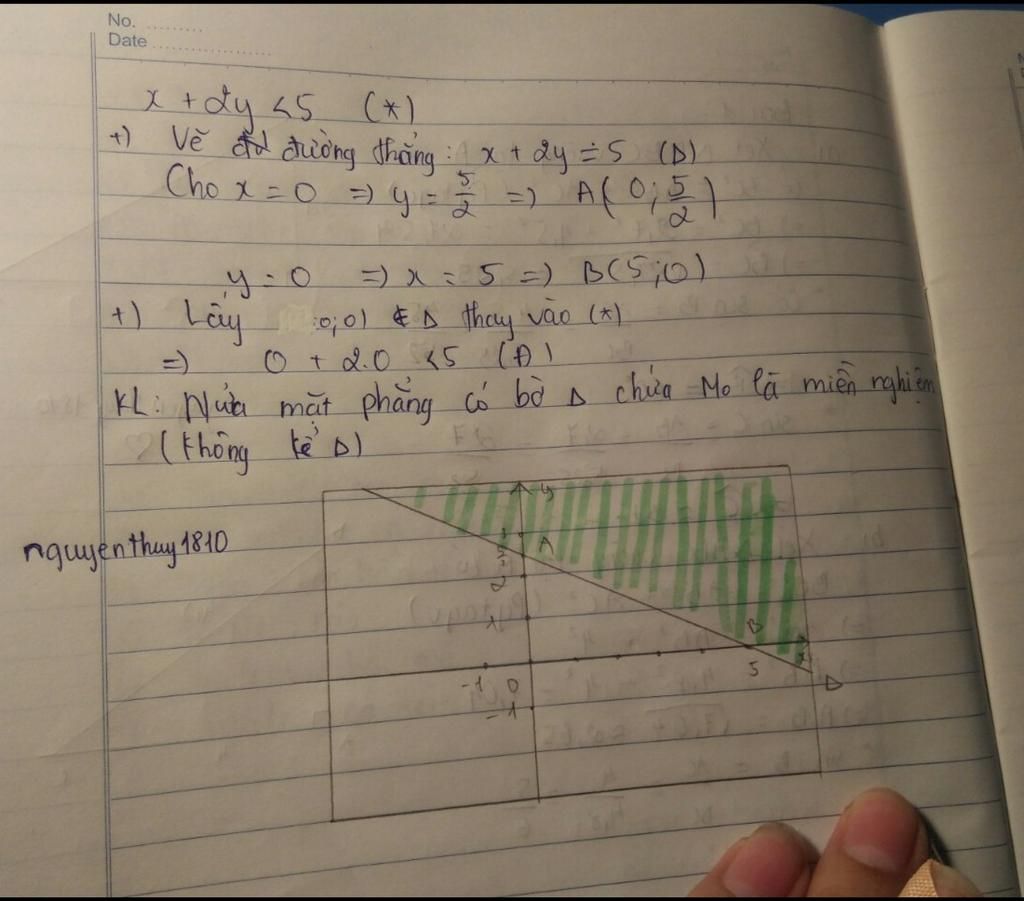 No. ..........
Date .....................
x + 2y < 5 (*)
+) Vẽ đường thẳng: x + 2y = 5 (Δ)
Cho x = 0 => y = 5/2 => A(0; 5/2)
y = 0 => x = 5 => B(5;0)
+) Lấy 0;0) ∉ Δ thay vào (*)
=> 0 + 2.0 < 5 (Đ)
KL: Nửa mặt phẳng có bờ Δ chứa Mo là miền nghiệm
(không kể Δ)
y
A
nguyenthuy1810
2
1
B
x
-1 0 5 Δ
-1